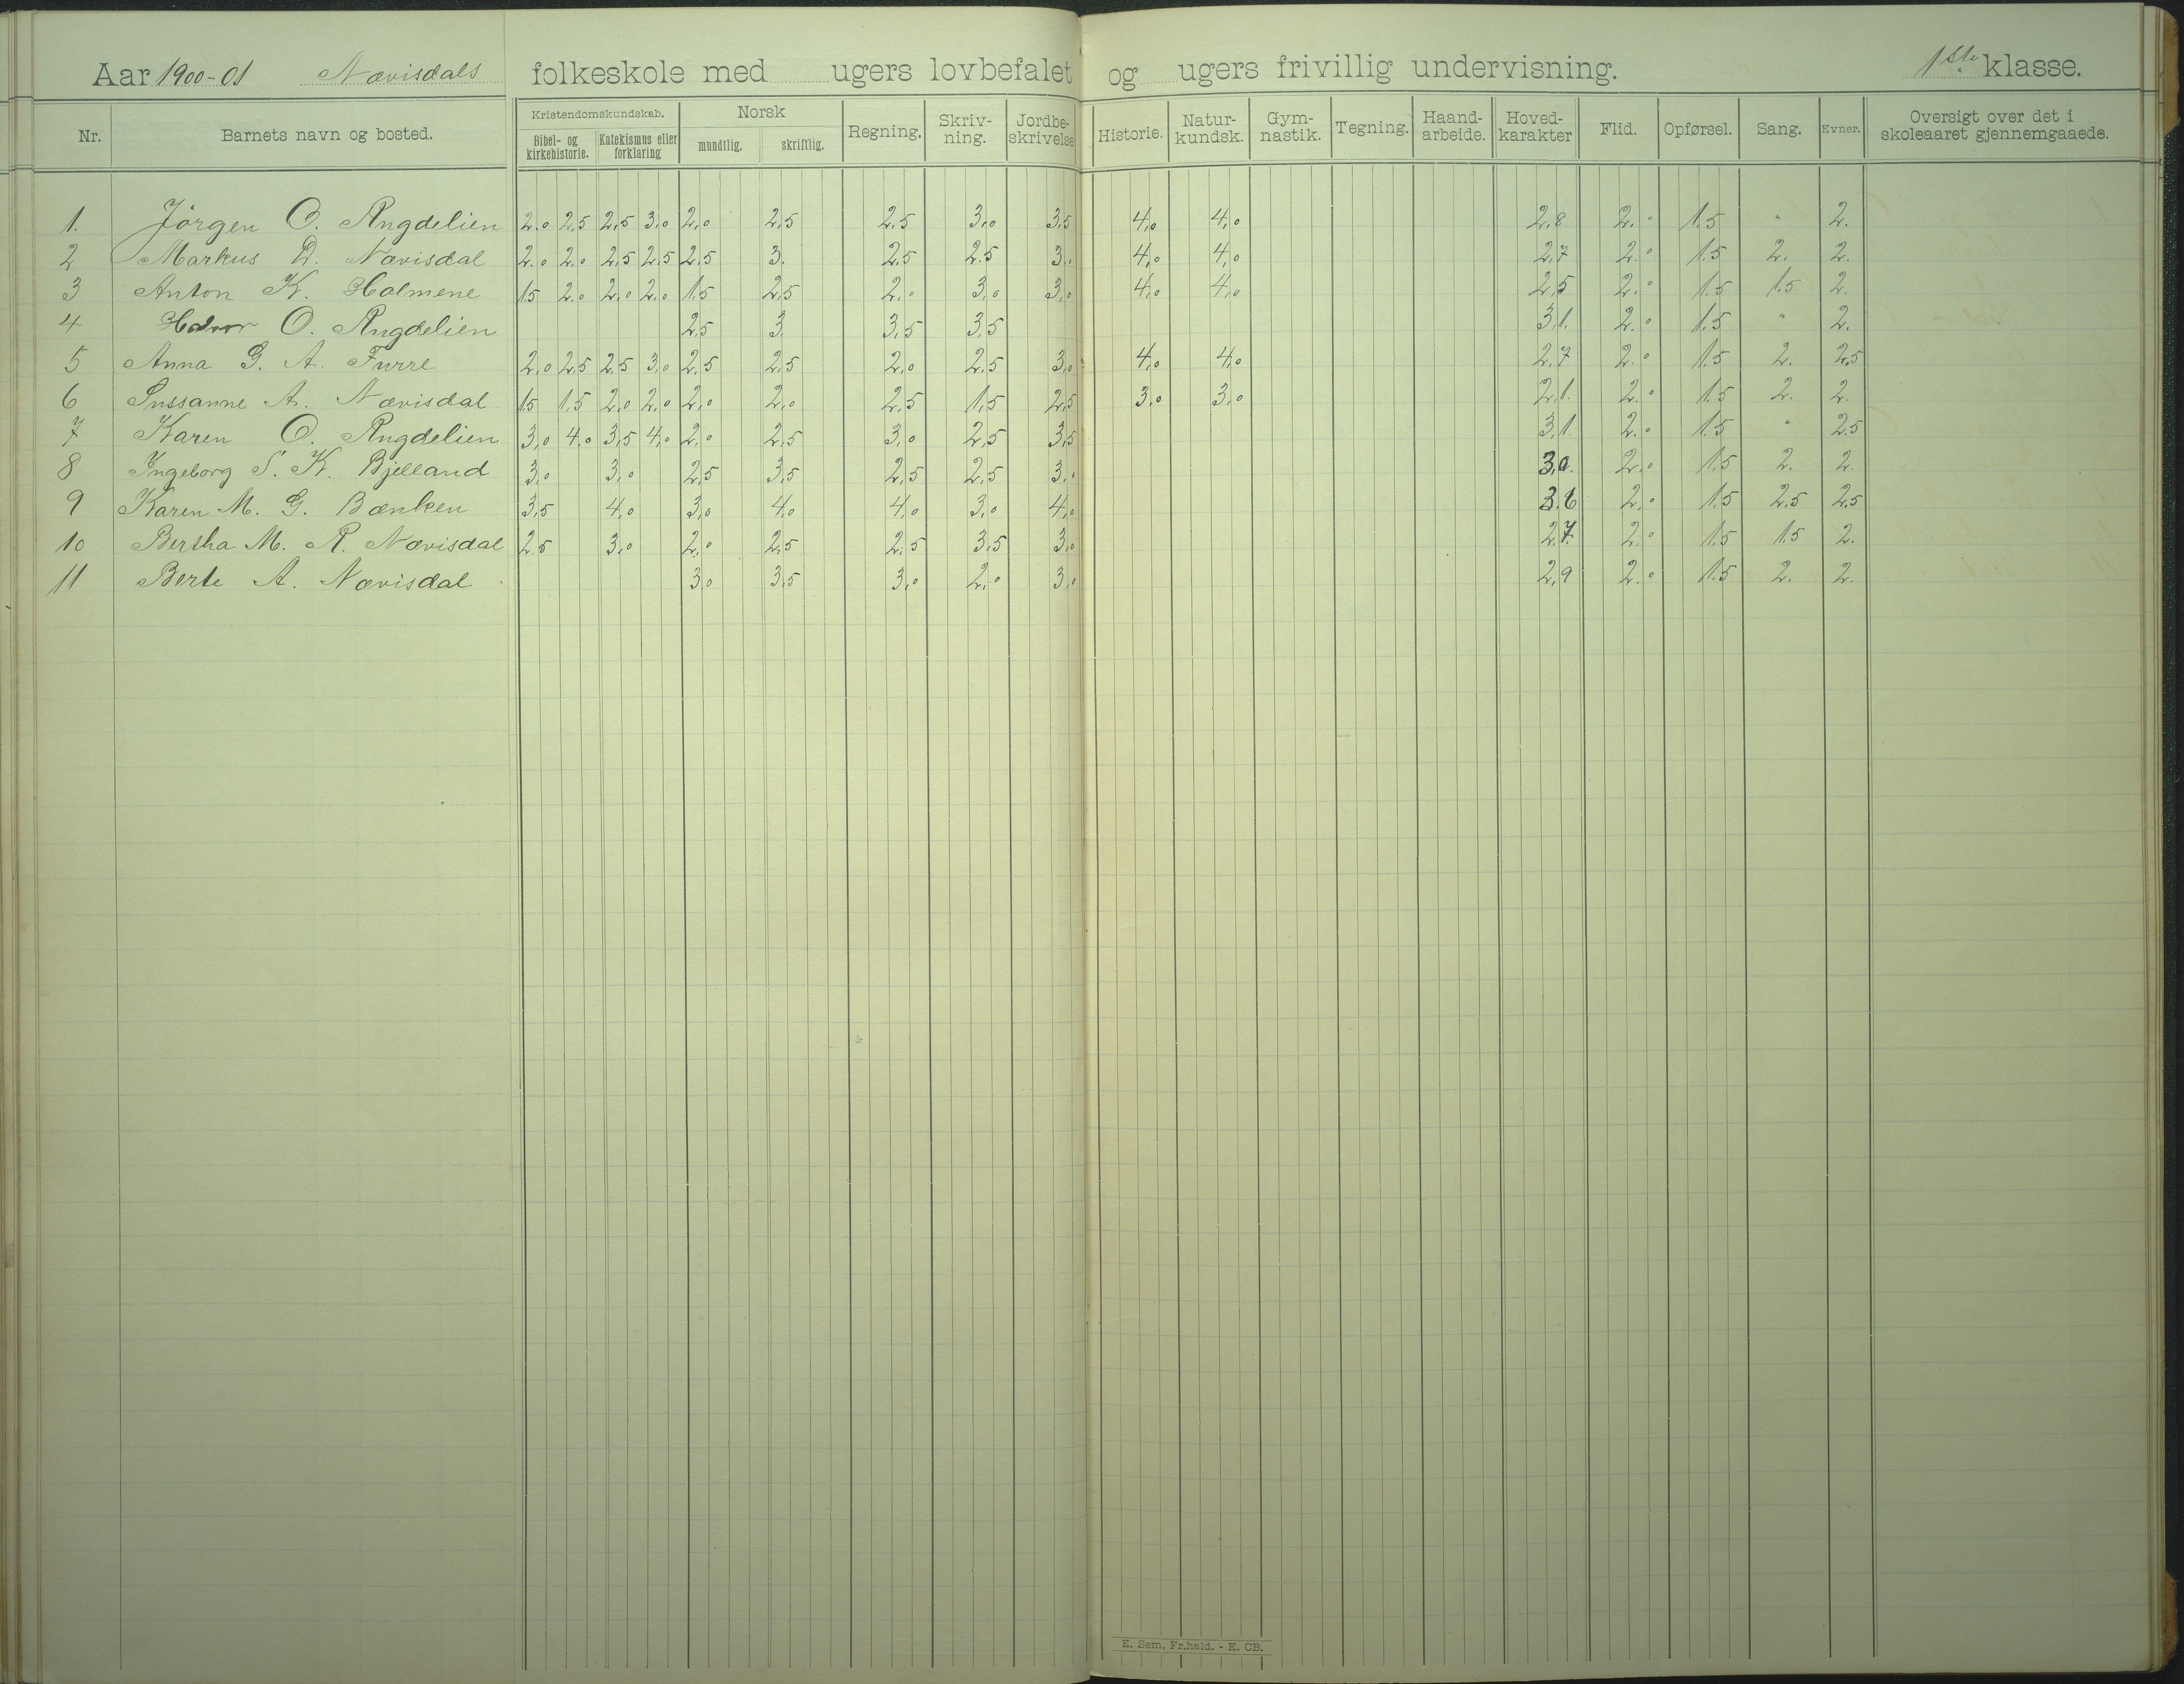 Aar 1900-01 Nævisdals folkeskole med ugers lovbefalet og ugers frivillig undervisning. 1ste klasse.
Nr. Barnets navn og bosted. Kristendomskundskab. Bibel- og kirkehistorie. Katekismus eller forklaring Norsk mundtlig. skriftlig. Regning. Skriv-ning. Jordbe-skrivelse Historie. Natur-kundsk. Gym-nastik. Tegning. Haand-arbeide. Hoved-karakter Flid. Opførsel. Sang. Evner. Oversigt over det i skoleaaret gjennemgaaede.
1. Jörgen O. Angdelien 2.0 2,5 2,5 3,0 2,0 2,5 2,5 3,0 3,5 4,0 4,0 2,8 2.0 1.5 " 2.
2 Markus D. Nævisdal 2.0 2.0 2,5 2,5 2,5 3. 2,5 2.5 3,0 4,0 4,0 2,7 2.0 1.5 2. 2.
3 Anton K. Holmene 1.5 2.0 2,0 2,0 1,5 2,5 2,0 3,0 3,0 4,0 4,0 2,5 2.0 1.5 1.5 2.
4 Halvor O. Angdelien 2,5 3. 3,5 3,5 3,1. 2.0 1.5 " 2.
5 Anna G. A. Furre 2,0 2,5 2,5 3,0 2,5 2,5 2,0 2,5 3,0 4,0 4,0 2,7 2.0 1.5 2. 2,5
6 Sussanne A. Nævisdal 1.5 1.5 2,0 2,0 2,0 2,0 2,5 1,5 2,5 3,0 3,0 2,1. 2.0 1.5 2. 2.
7 Karen O. Angdelien 3,0 4,0 3,5 4,0 2,0 2,5 3,0 2,5 3,5 3,1. 2.0 1.5 " 2.5
8 Ingeborg S. K. Bjelland 3,0 3,0 2,5 3,5 2,5 2,5 3,0 3,0. 2.0 1.5 2. 2.
9 Karen M. G. Bænken 3,5 4,0 3,0 4,0 4,0 3,0 4,0 3.6 2.0 1.5 2,5 2,5
10 Bertha M. R. Nævisdal 2.5 3,0 2,0 2,5 2,5 3,5 3,0 2,7. 2.0 1.5 1.5 2.
11 Berte A. Nævisdal 3,0 3,5 3,0 2,0 3,0 2,9 2.0 1.5 2. 2.
E. Sem, Fr.hald. - E. CB.